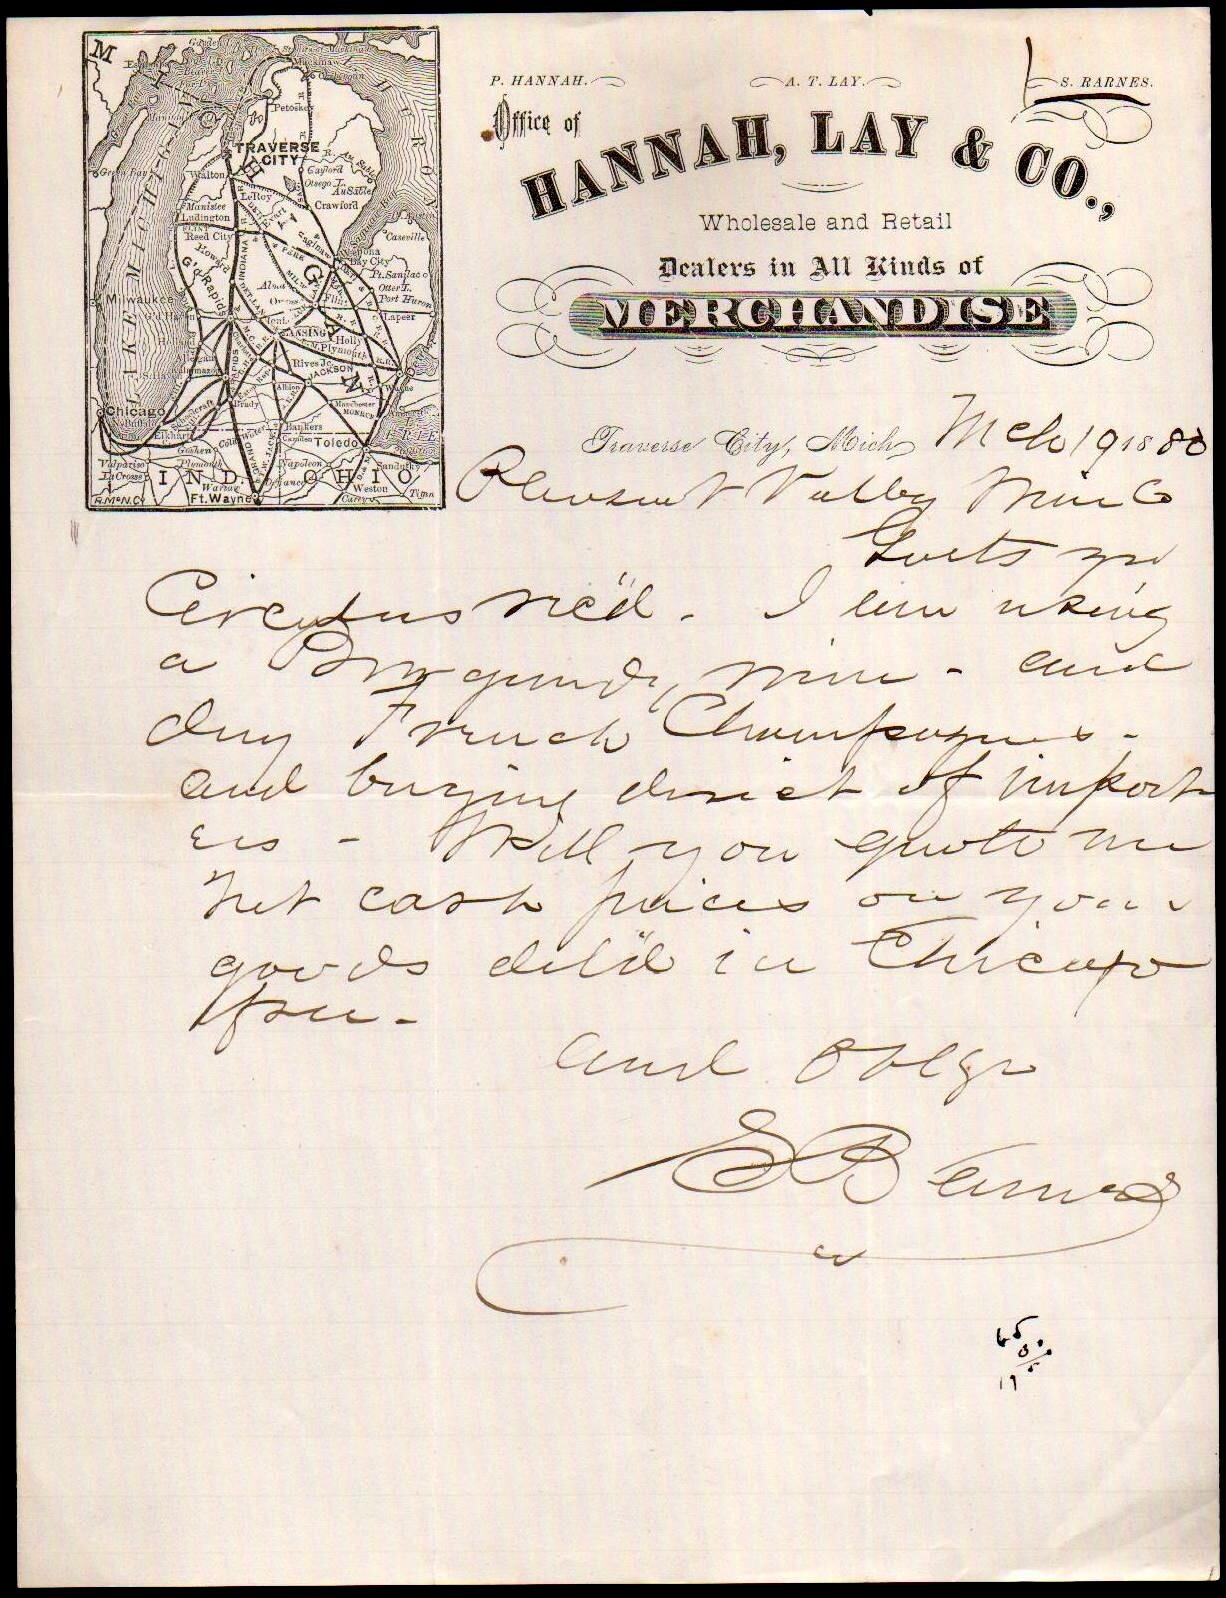 P. HANNAH. A. T. LAY. S. BARNES.
Office of
HANNAH, LAY & CO.,
Wholesale and Retail
Dealers in All Kinds of
MERCHANDISE
Traverse City, Mich, Mch 19 1880
Pleasant Valley Wine Co
Gents yr
Circulars rec'd. I am using
a Burgundy wine - and
dry French Champagnes -
and buying direct of import
ers - Will you quote me
net cash prices on your
goods del'd in Chicago
free -
and Oblge
S Barnes
M
TRAVERSE CITY
Petoskey
Mackinaw
Walton
Gaylord
Otsego L.
Au Sable
AuSable
Crawford
LeRoy
Manistee
Ludington
Reed City
Evart
Saginaw
Caseville
Bay City
Pt. Sanilac
Otter L.
Port Huron
Lapeer
Howard
Gd Rapids
Milwaukee
LAKE MICHIGAN
Flint
LANSING
Holly
Plymouth
Rives Jc.
JACKSON
Albion
Wayne
Manchester
MONROE
Chicago
Elkhart
Goshen
Cold Water
Bankers
Camden
Toledo
Sandusky
Valpariso
LaCrosse
Plymouth
Warsaw
Napoleon
Defiance
Weston
Carey
Tiffin
IND. OHIO
Ft. Wayne
R. McN. Co